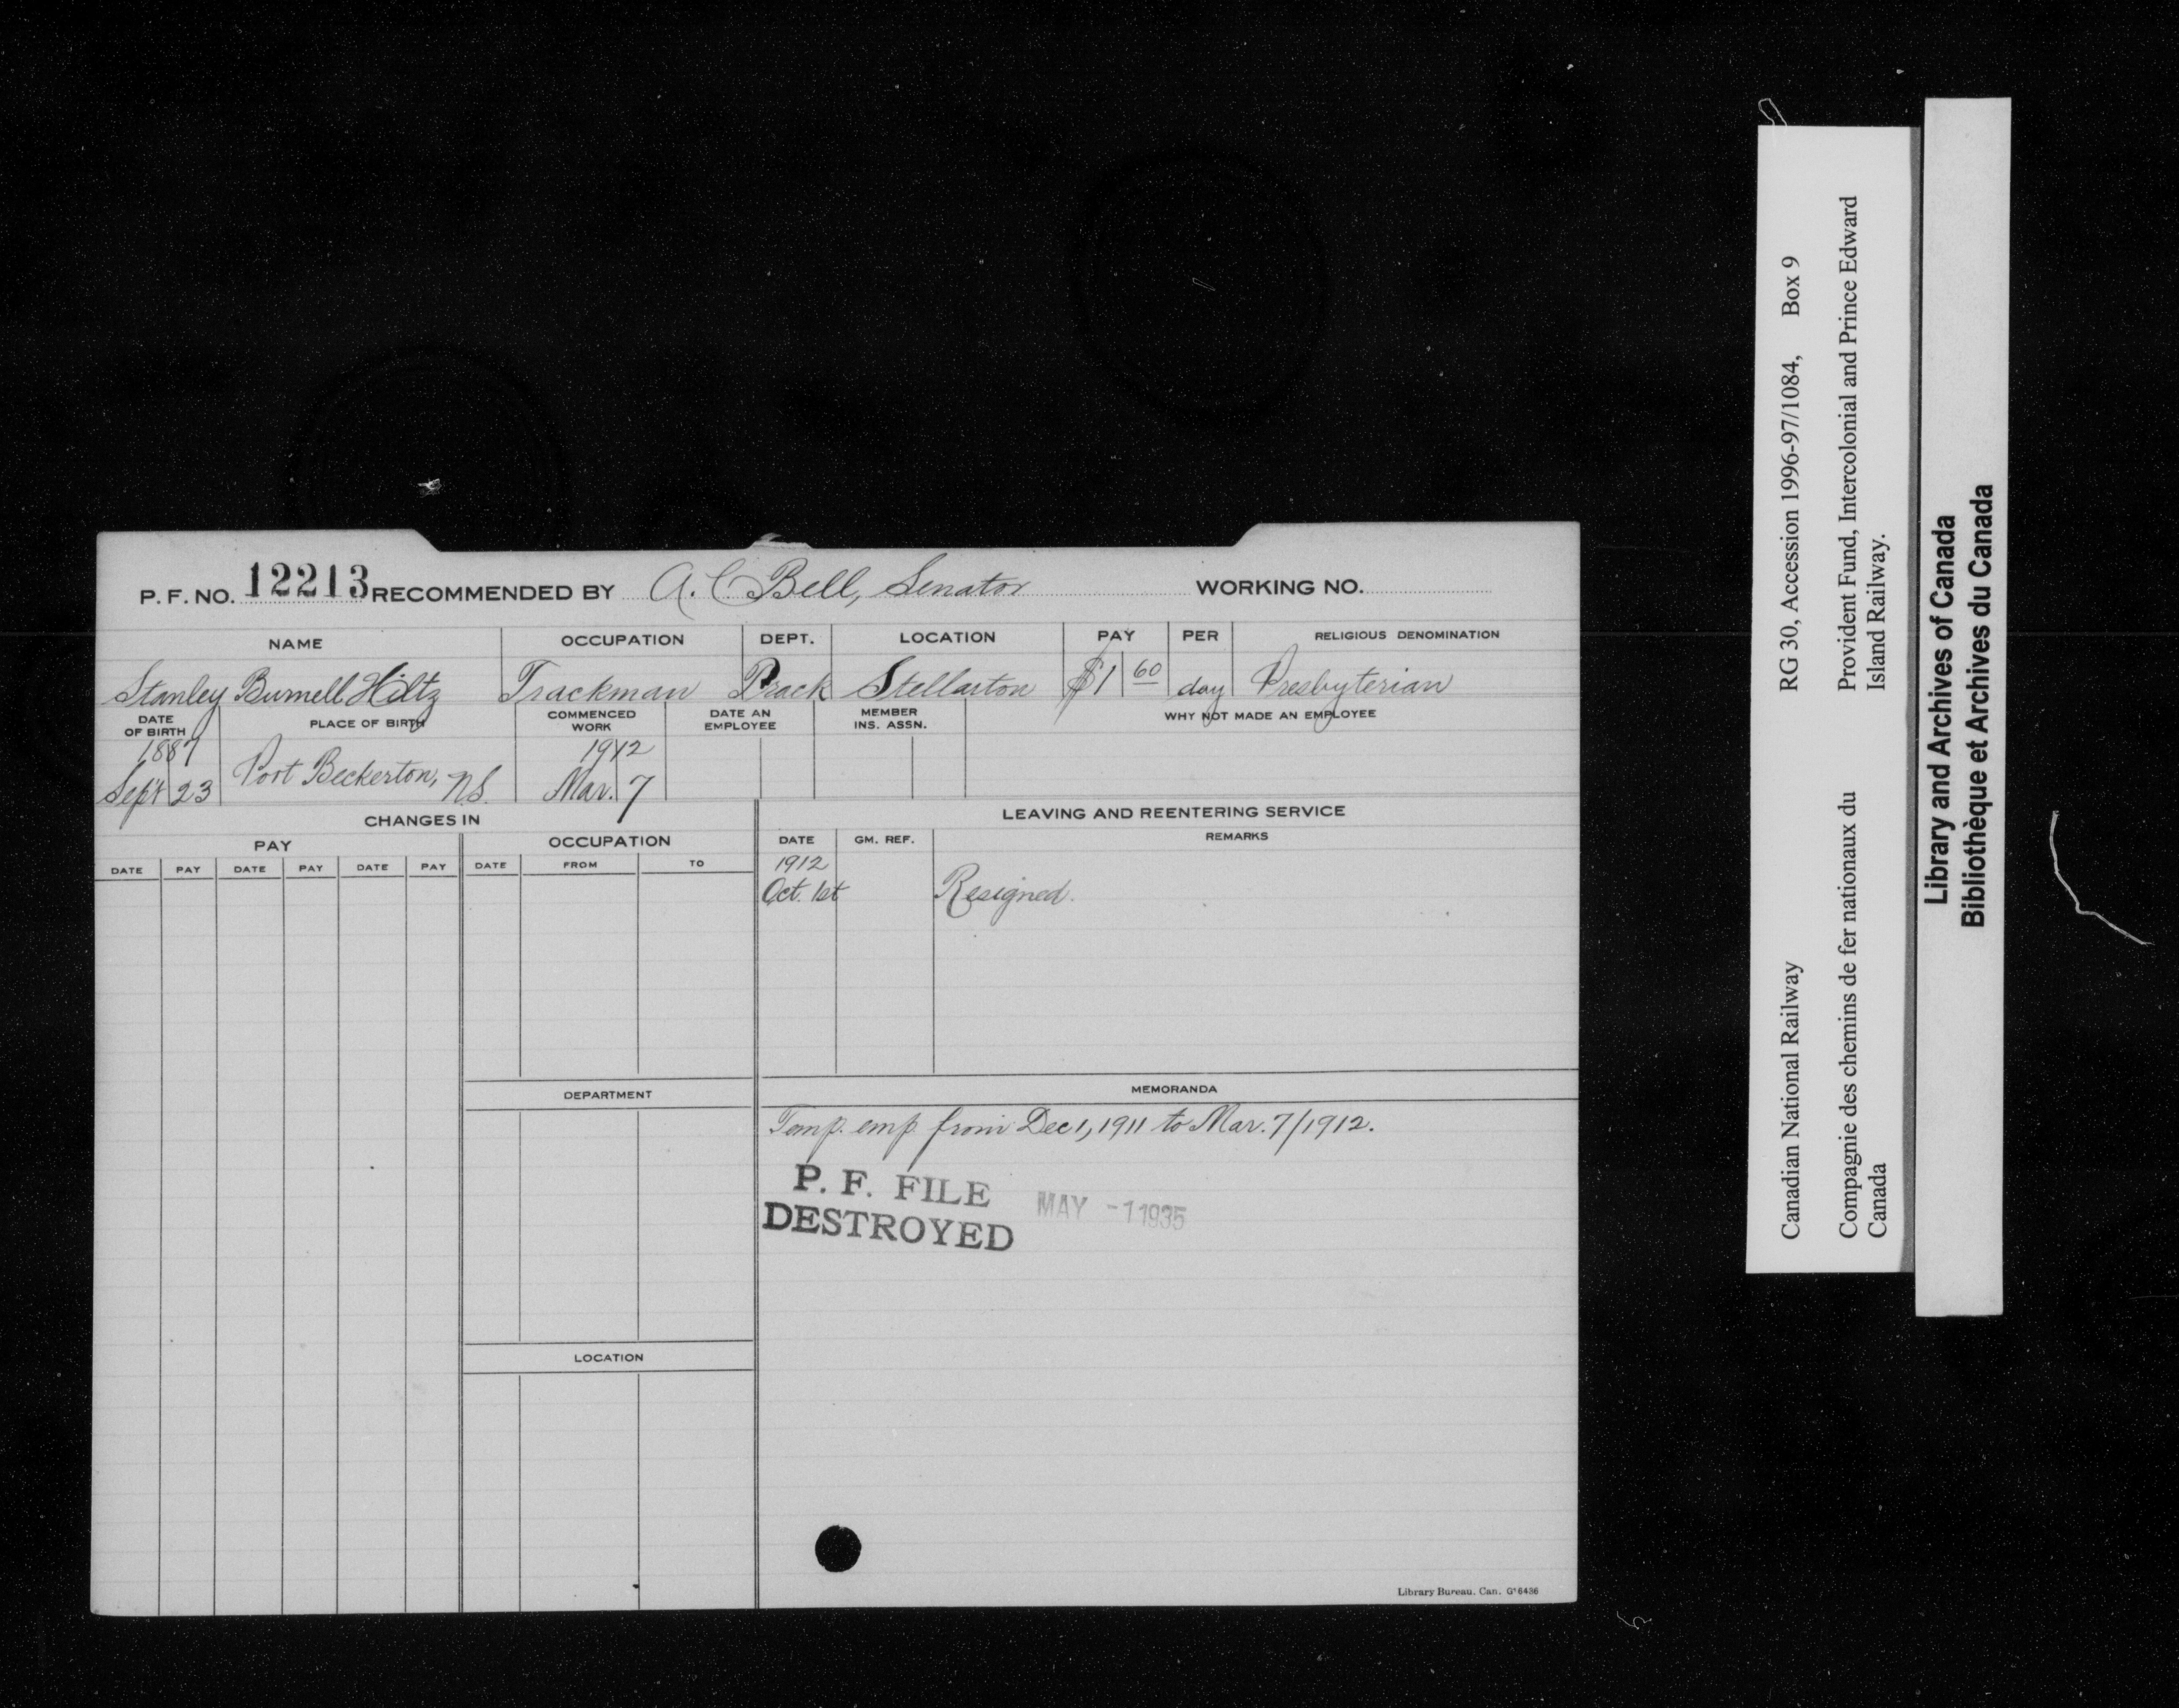 P. F. NO. 12213 RECOMMENDED BY A. C. Bell, Senator WORKING NO.
NAME OCCUPATION DEPT. LOCATION PAY PER RELIGIOUS DENOMINATION
Stanley Burnell Hiltz Trackman Track Stellarton $1 60 day Presbyterian
DATE OF BIRTH PLACE OF BIRTH COMMENCED WORK DATE AN EMPLOYEE MEMBER INS. ASSN. WHY NOT MADE AN EMPLOYEE
1887 1912
Sept 23 Port Beckerton, N.S. Mar. 7
CHANGES IN LEAVING AND REENTERING SERVICE
PAY OCCUPATION DATE GM. REF. REMARKS
DATE PAY DATE PAY DATE PAY DATE FROM TO
1912
Oct. 1st Resigned.
DEPARTMENT
MEMORANDA
Temp. emp. from Dec 1, 1911 to Mar. 7/1912.
P. F. FILE
DESTROYED MAY -1 1935
LOCATION
Library Bureau. Can. G*6436
Canadian National Railway RG 30, Accession 1996-97/1084, Box 9
Compagnie des chemins de fer nationaux du Canada
Provident Fund, Intercolonial and Prince Edward Island Railway.
Library and Archives of Canada
Bibliothèque et Archives du Canada